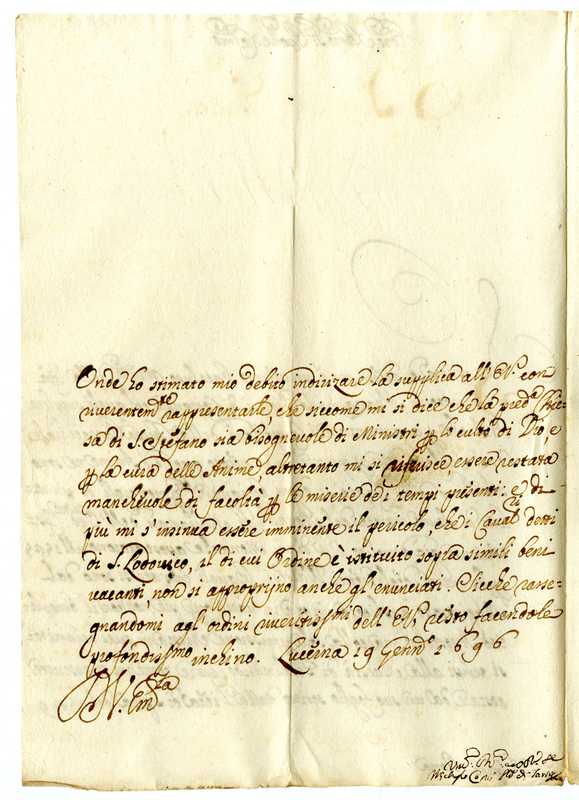 Onde ho stimato mio debito indirizare la supplica all' E.V. con
riverentemte rappresentarle, che siccome mi si dice che la preda Chie-
sa di S. Stefano sia bisognevole di Ministri p lo culto di Dio, e
p la cura delle Anime, altretanto mi si riferisce essere restata
manchevole di facoltà p le miserie dei tempi presenti: e di
più mi s'insinua essere imminente il pericolo, che i Cavalri detti
di S. Lodovico, il di cui Ordine è istituito sopra simili beni
vacanti, non si approprijno anche gl'enunciati. Sicche rasse-
gnandomi agl'ordini riveritissmi dell' E.V. resto facendole
profondissmo inchino. Lucerna 19 Gennro 1696
V. Emza